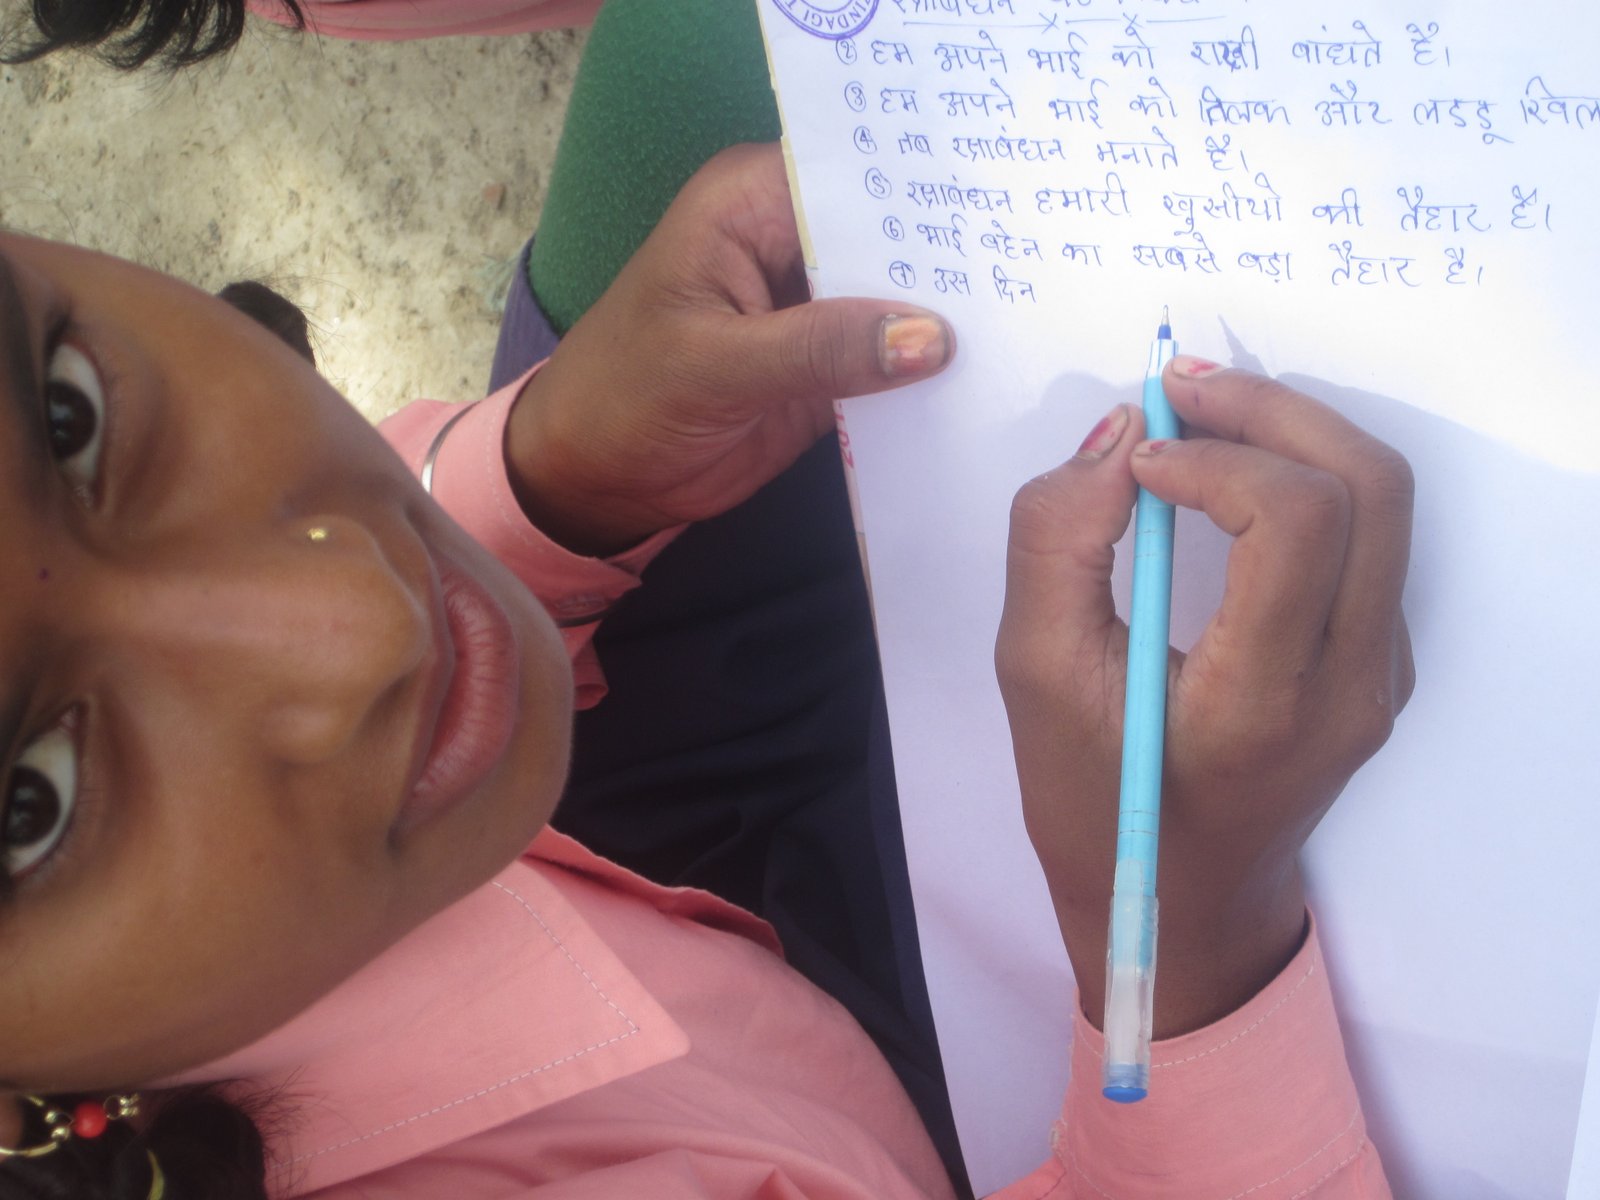 INDAGI
रक्षाबंधन
② हम अपने भाई को राखी बांधते है।
③ हम अपने भाई को तिलक और लडडू खिल
④ तब रक्षाबंधन मनाते है।
⑤ रक्षाबंधन हमारी खुसीयो की तैहार है।
⑥ भाई बहेन का सबसे बड़ा तैहार है।
⑦ उस दिन